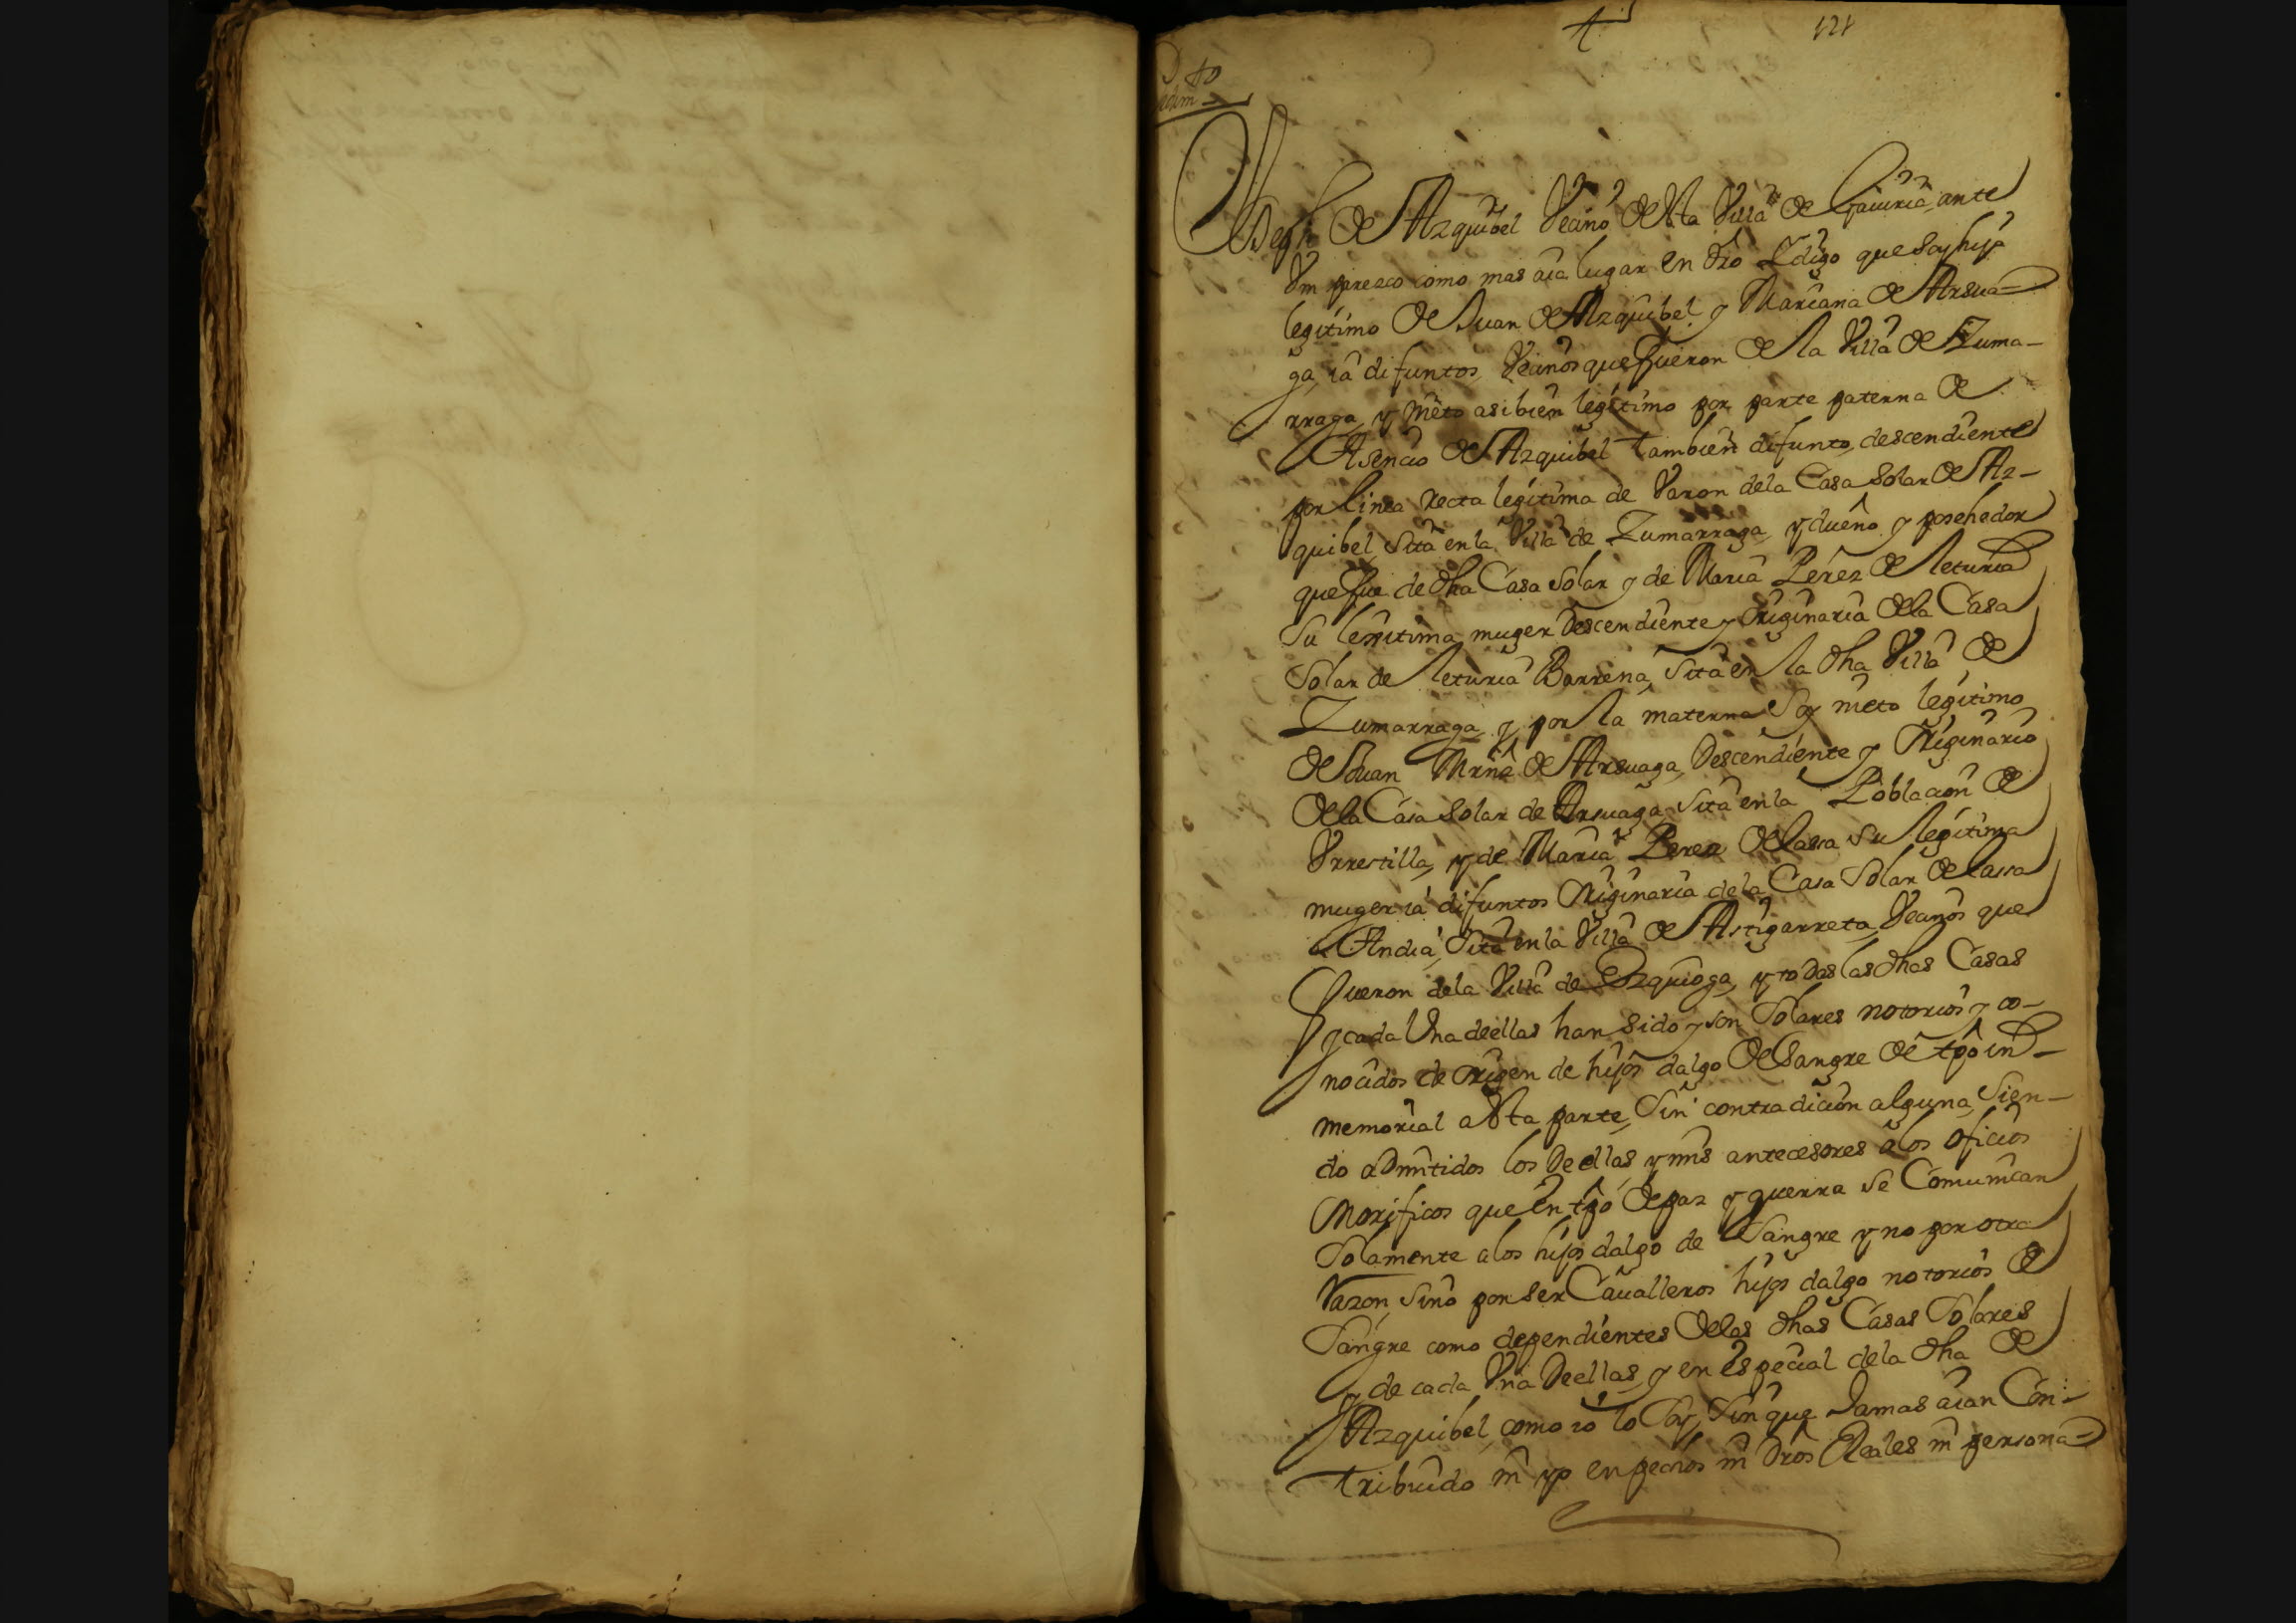 121
Pedimto
Joseph de Azquibel Vecino desta Villa de Gauiria, ante
Vm parezco como mas aia lugar en dro Y digo que soy hijo
legitimo de Juan de Azquibel y Mariana de Arsua=
ga, ia difuntos, Vecinos que fueron de la Villa de Zuma-
rraga, y nieto asibien legitimo por parte paterna de
Asencio de Azquibel tambien difunto, descendiente
por linea recta legitima de Varon dela Casa Solar de Az-
quibel, sita en la Villa de Zumarraga, y dueño y posehedor
que fue de dha Casa Solar y de Maria Perez de leturia
su lexitima muger Descendiente y Originaria dela Casa
Solar de leturia Barrena, sita en la dha Villa de
Zumarraga, y por la materna Soy nieto legitimo
de Juan Mrnz de Arsuaga, Descendiente y Originario
dela Casa solar de Arsuaga, sita en la Poblacion de
Vrrestilla, y de Maria Perez de lassa su legitima
muger ia difuntos Originaria dela Casa Solar de lassa
Andia, Sita en la Villa de Astigarreta, Vecinos que
fueron dela Villa de Ezquioga, y todas las dhas Casas
y cada Una deellas han sido y son Solares notorios y co-
nocidos de origen de hijos dalgo de sangre de tpo in-
memorial a esta parte, Sin contradicion alguna, Sien-
do admitidos los Deellas, y mis antecesores a los oficios
onorificos que en tpo de paz y guerra se Comunican
Solamente a los hijos dalgo de Sangre y no por otra
razon, sino por ser Caualleros hijos dalgo notorios de
Sangre como dependientes delas dhas Casas Solares
y de cada Vna Deellas, y en especial dela dha de
Azquibel, como io lo Soy, Sin que Jamas aian Con-
tribuido ni yo en pechos ni Dros Reales ni persona=